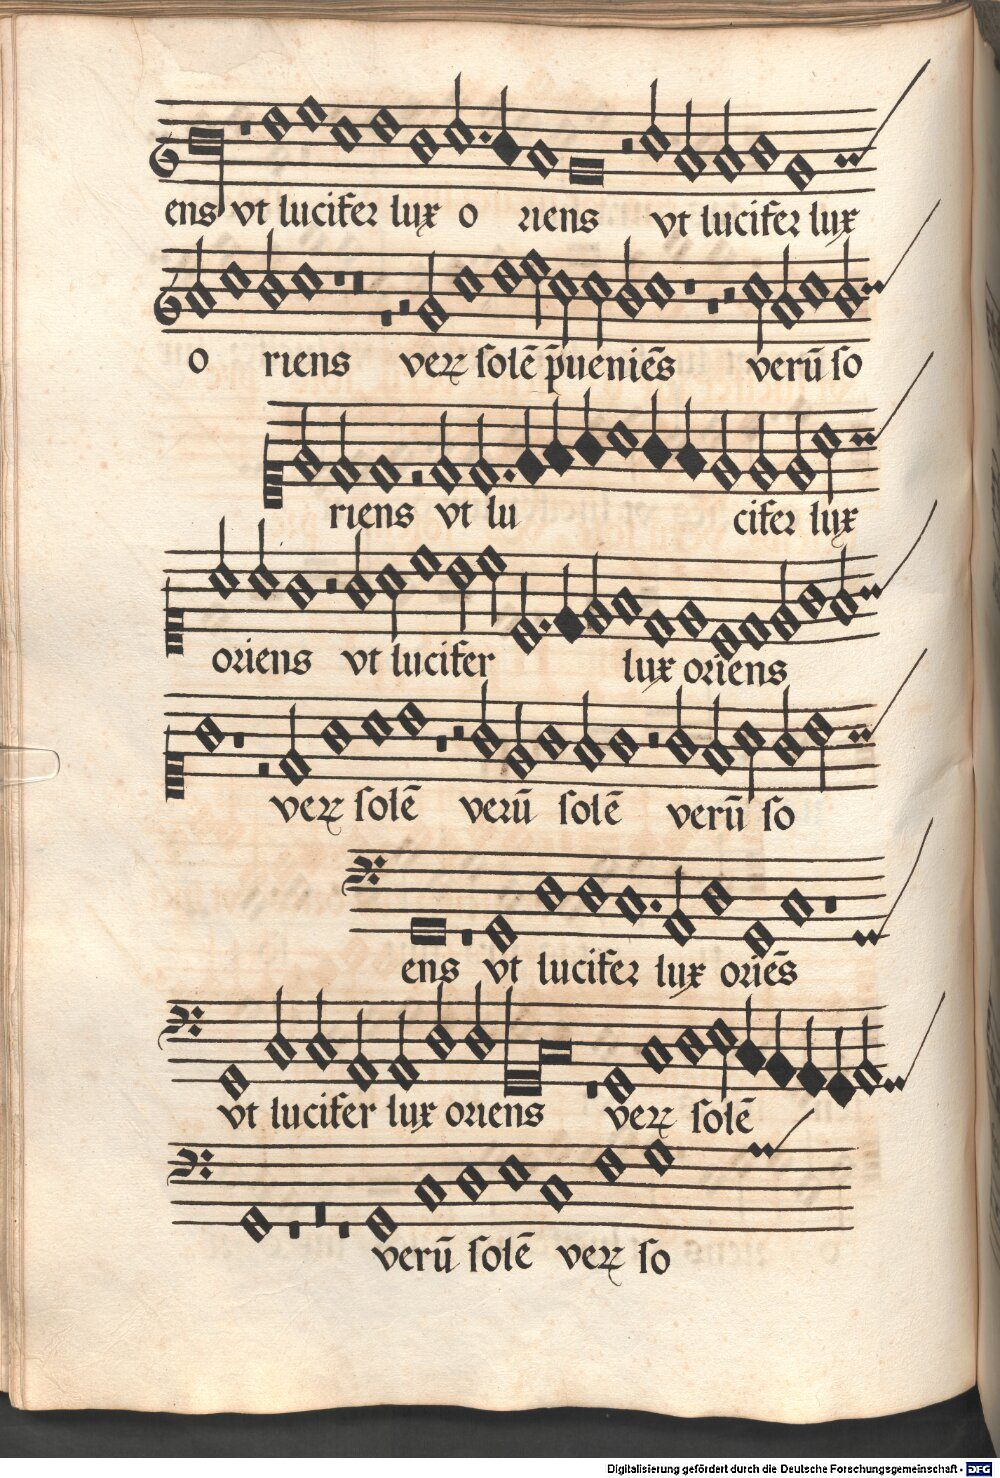 ens vt lucifer lux o riens vt lucifer lux
o riens veꝝ ſolē p̄ueniēs verū ſo
riens vt lu cifer lux
oriens vt lucifer lux oriens
veꝝ ſolē verū ſolē verū ſo
ens vt lucifer lux oriēs
vt lucifer lux oriens veꝝ ſolē
verū ſolē veꝝ ſo
Digitalisierung gefördert durch die Deutsche Forschungsgemeinschaft - DFG